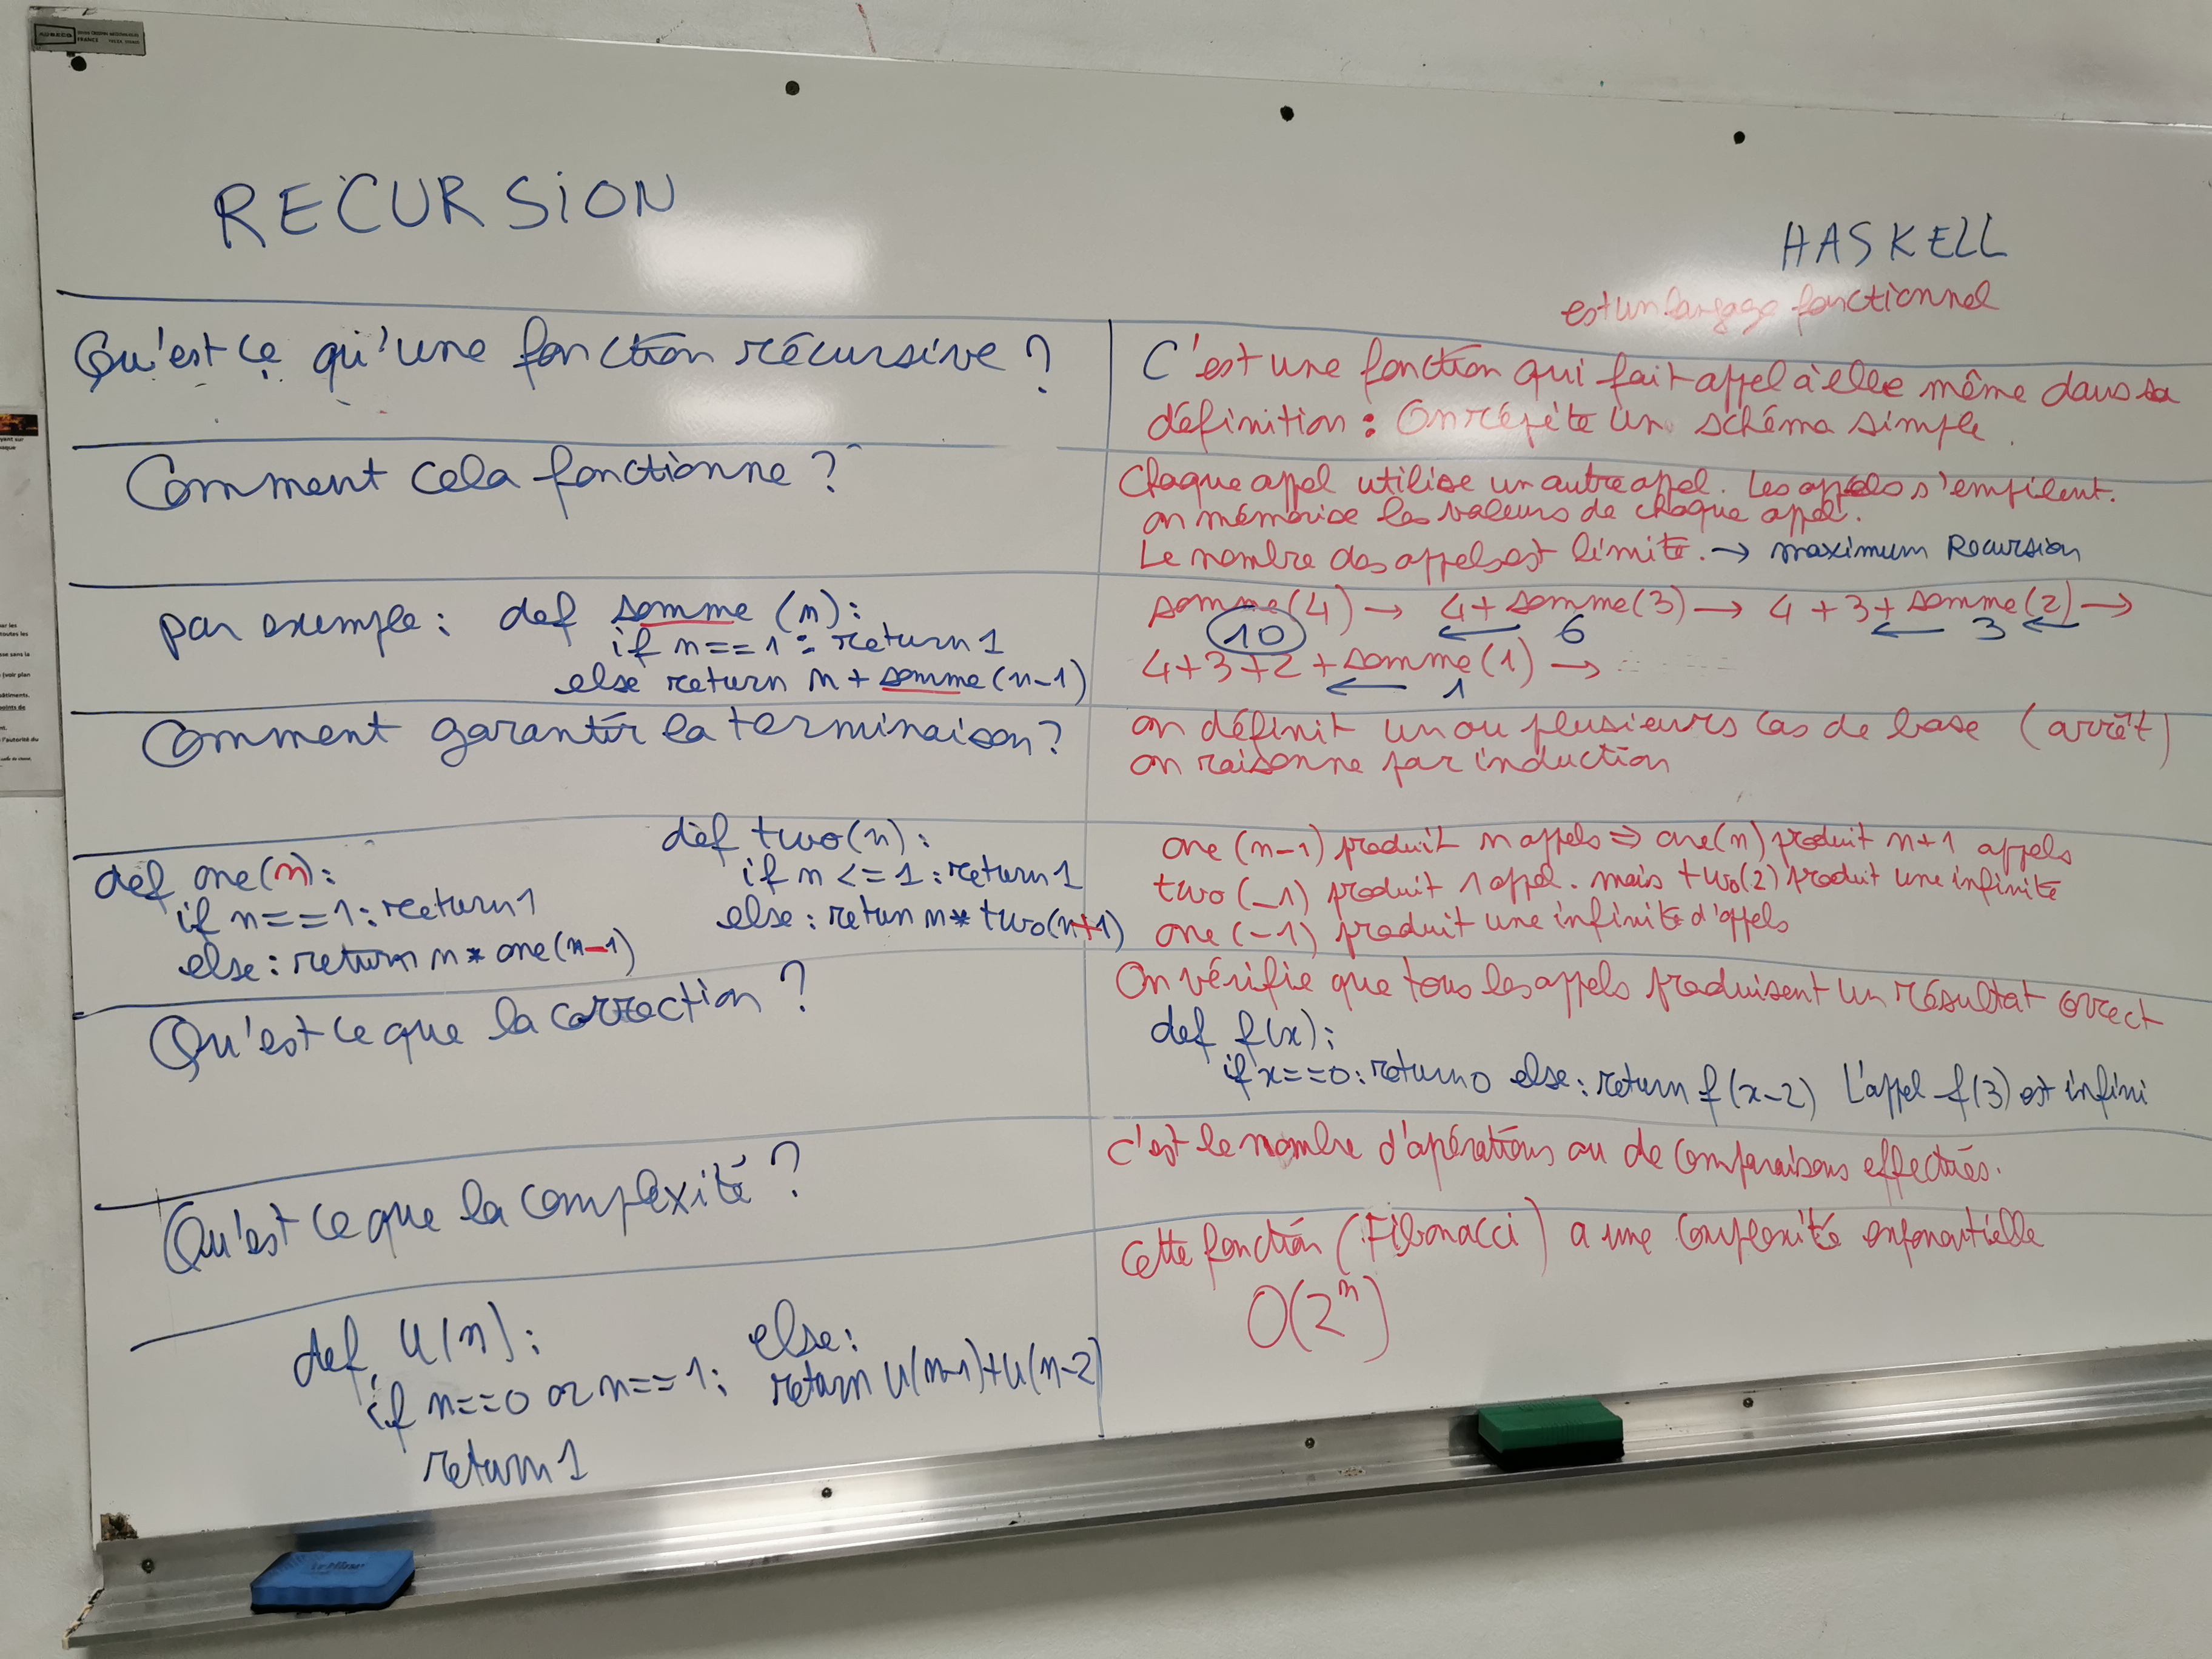 RECURSION
HASKELL
est un langage fonctionnel
Qu'est ce qu'une fonction récursive ?
C'est une fonction qui fait appel à elle même dans sa
définition : On répète un schéma simple.
Comment cela fonctionne ?
Chaque appel utilise un autre appel. Les appels s'empilent.
on mémorise les valeurs de chaque appel.
Le nombre des appels est limité. → maximum Recursion
par exemple : def somme (n):
if n==1 : return 1
else return n + somme (n-1)
somme(4) → 4+ somme(3) → 4 +3+ somme(2) →
10 ← 6 ← 3 ←
4+3+2 +somme(1) →
← 1
Comment garantir la terminaison ?
on définit un ou plusieurs cas de base (arrêt)
on raisonne par induction
def one(n):
if n==1: return 1
else: return n * one(n-1)
def two(n):
if n <= 1 : return 1
else: retun n* two(n+1)
one (n-1) produit n appels ⇒ one(n) produit n+1 appels
two (-1) produit 1 appel. mais two(2) produit une infinité
one (-1) produit une infinité d'appels
Qu'est ce que la correction ?
On vérifie que tous les appels produisent un résultat correct
def f(x):
if x==0: return 0 else: return f(x-2) L'appel f(3) est infini
Qu'est ce que la complexité ?
C'est le nombre d'opérations ou de comparaisons effectués.
def u(n):
if n==0 or n==1:
return 1
else:
return u(n-1)+u(n-2)
Cette fonction (Fibonacci) a une complexité exponentielle
O(2^n)